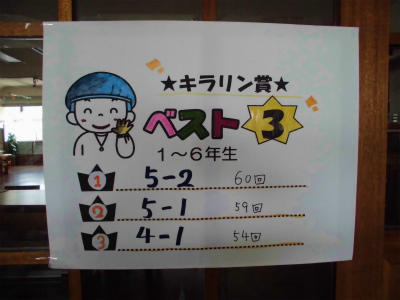 ★キラリン賞★
ベスト3
1～6年生
1 5-2 60回
2 5-1 59回
3 4-1 54回